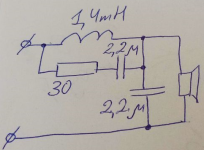 1,4mH
2,2м
30
2,2м